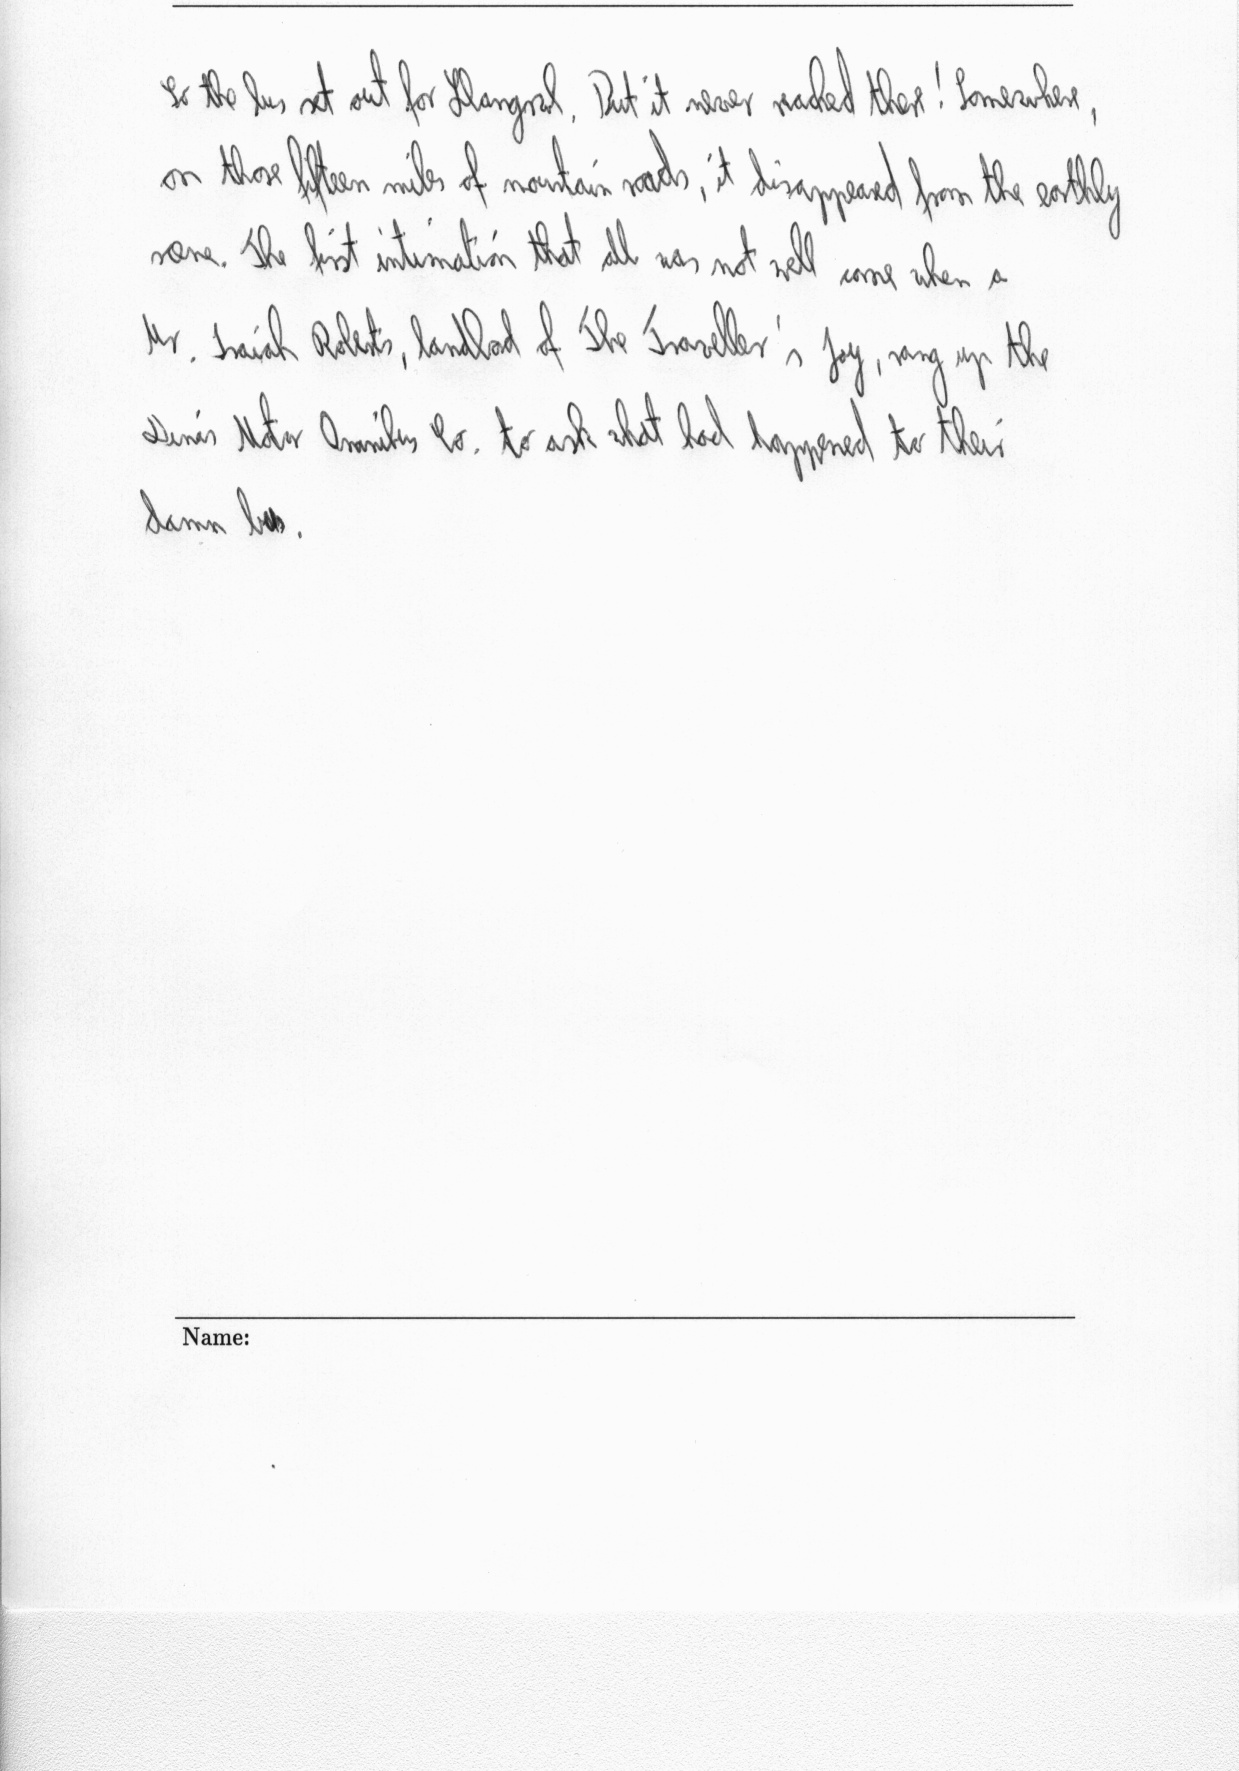 So the bus set out for Llangrol. But it never reached there! Somewhere,
on those fifteen miles of mountain roads, it disappeared from the earthly
scene. The first intimation that all was not well come when a
Mr. Isaiah Roberts, landlord of The Traveller's Joy, rang up the
Dinas Motor Omnibus Co. to ask what had happened to their
damn bus.
Name: